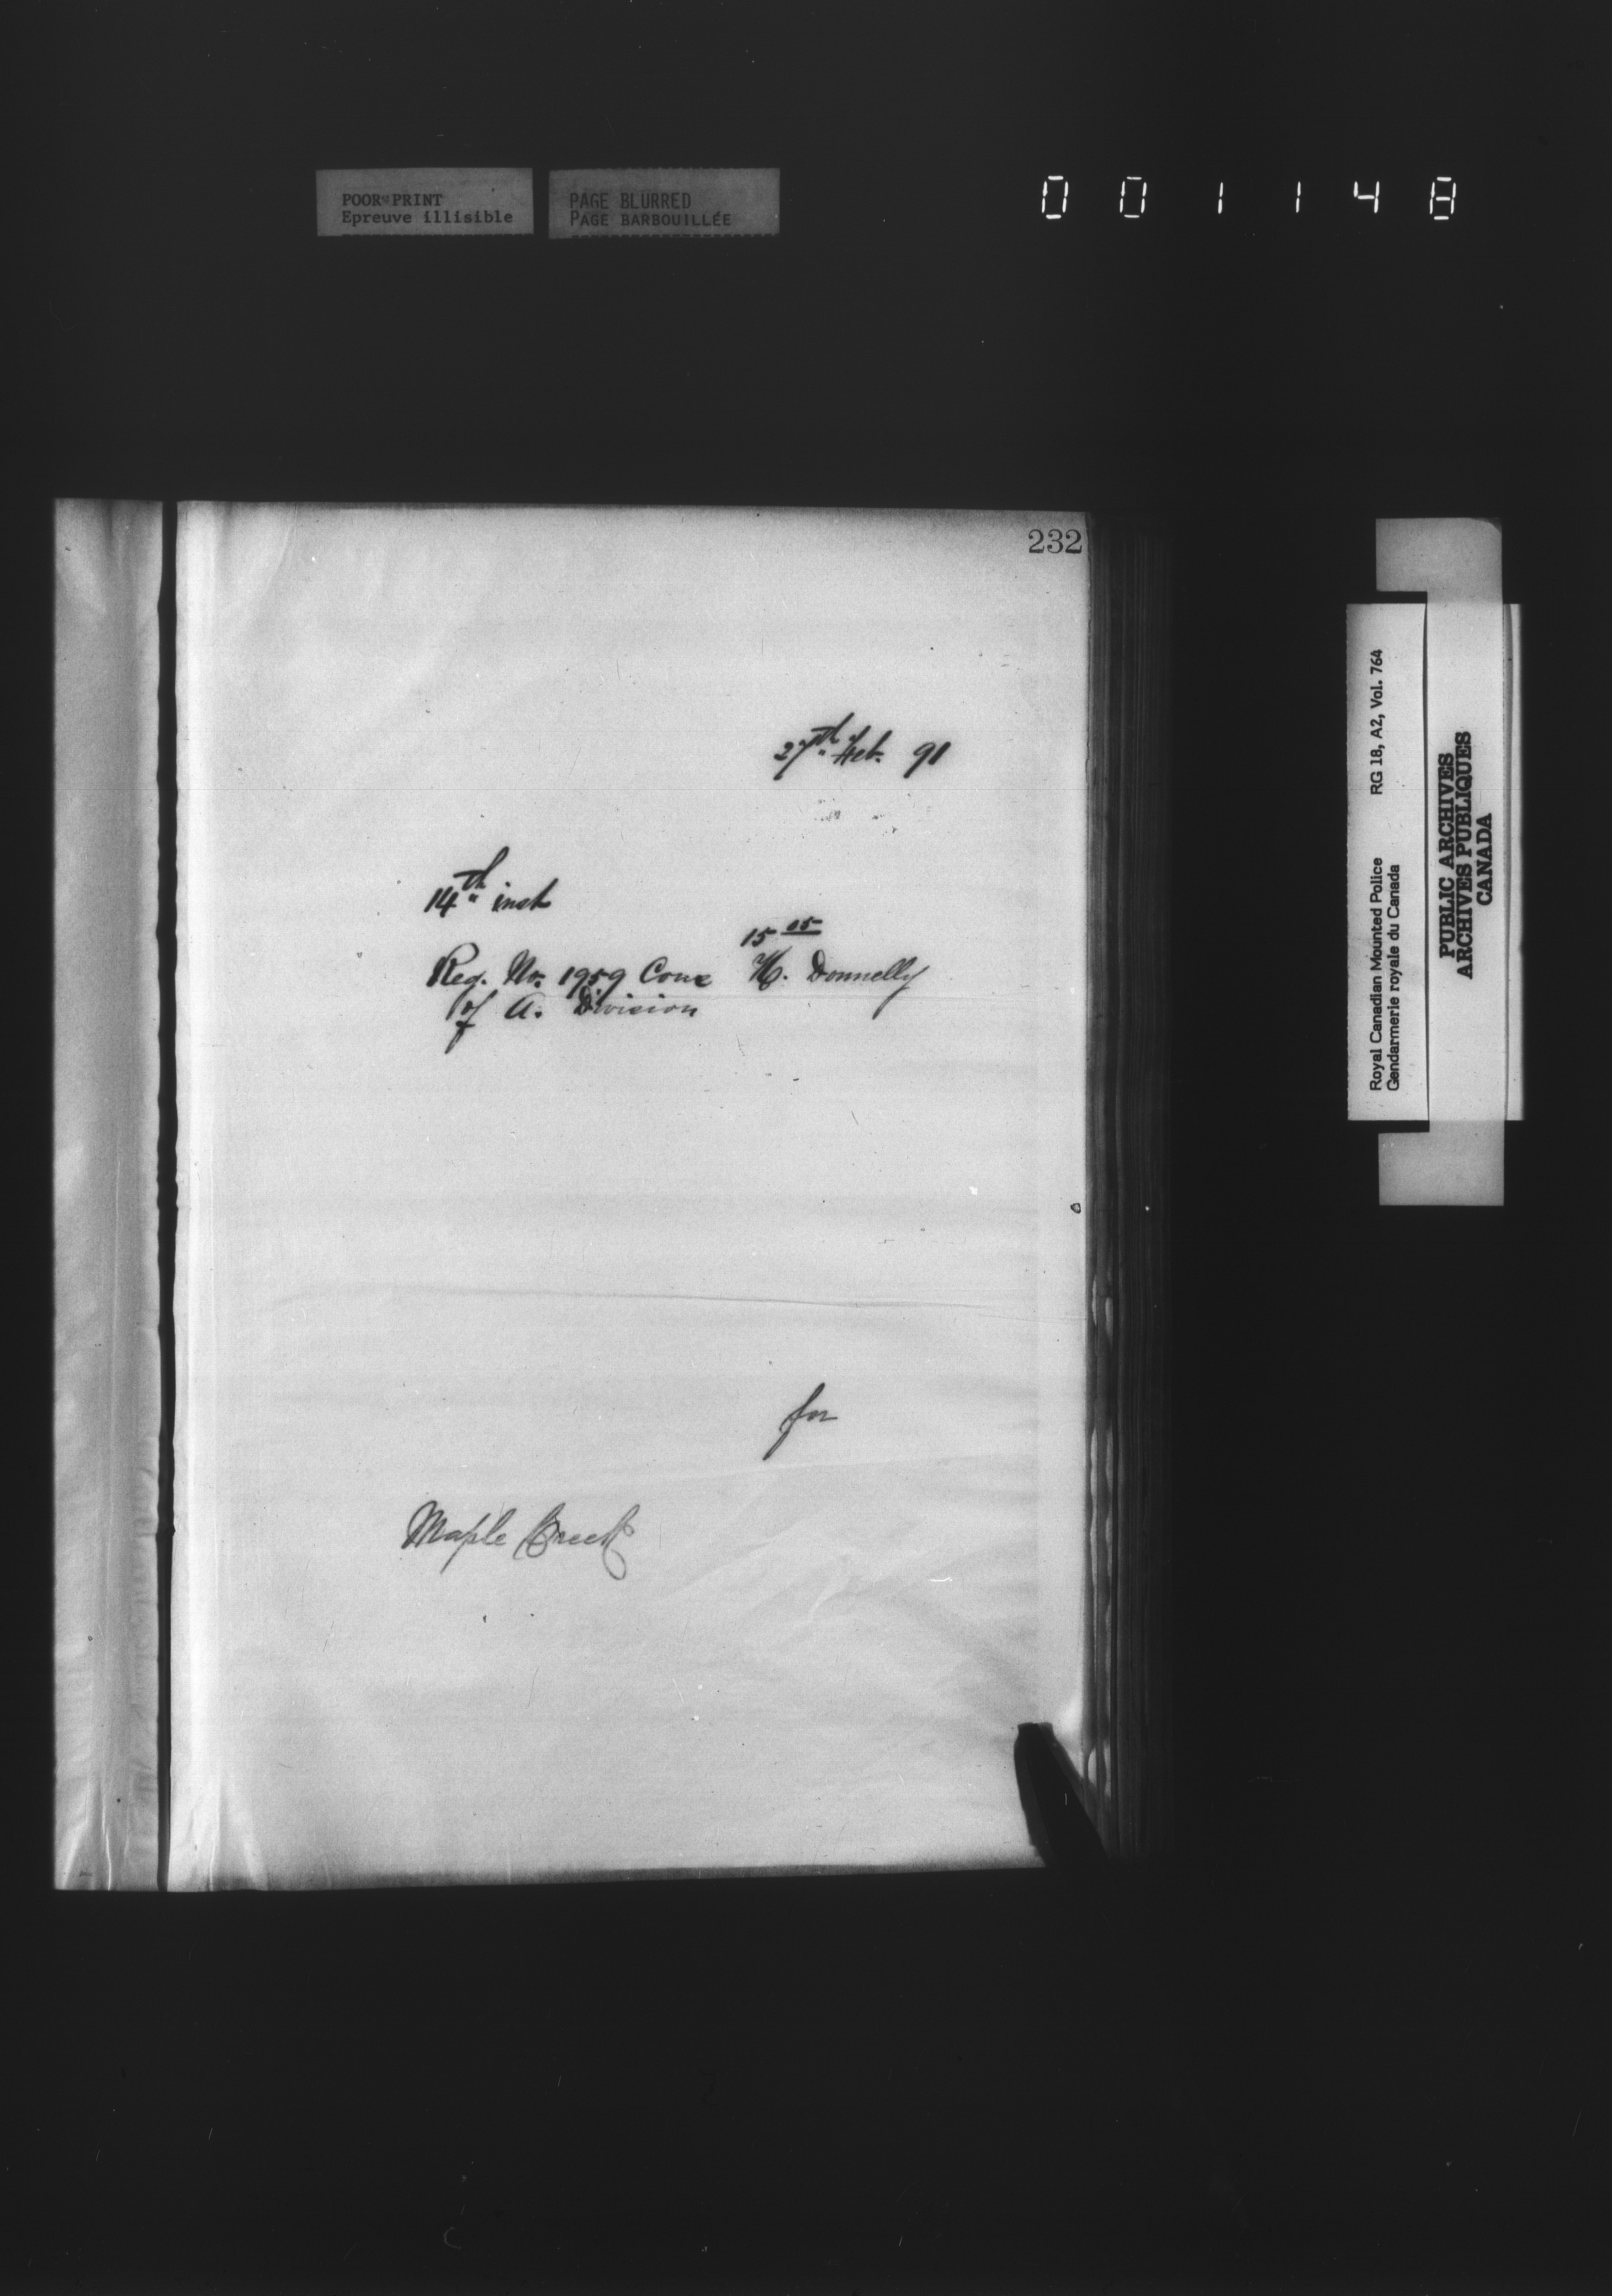 POOR PRINT
Epreuve illisible
PAGE BLURRED
PAGE BARBOUILLÉE
001148
232
27th Feb. 91
14th inst
15 05
Reg. No. 1959 Cons H. Donnelly
of A. Division
for
Maple Creek
Royal Canadian Mounted Police RG 18, A2, Vol. 764
Gendarmerie royale du Canada
PUBLIC ARCHIVES
ARCHIVES PUBLIQUES
CANADA